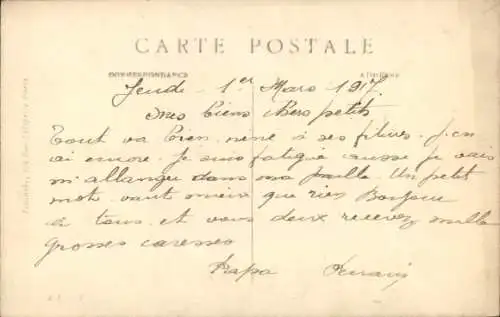 CARTE POSTALE
CORRESPONDANCE
Jeudi 1er Mars 1917.
Mes biens chers petits
Tout va bien même à ses fièvres. J'en
ai encore. Je suis fatigué aussi je vais
m'allanger dans ma paille. Un petit
mot vaut mieux que rien Bonjour
à tous et vous deux recevez mille
grosses caresses
Papa